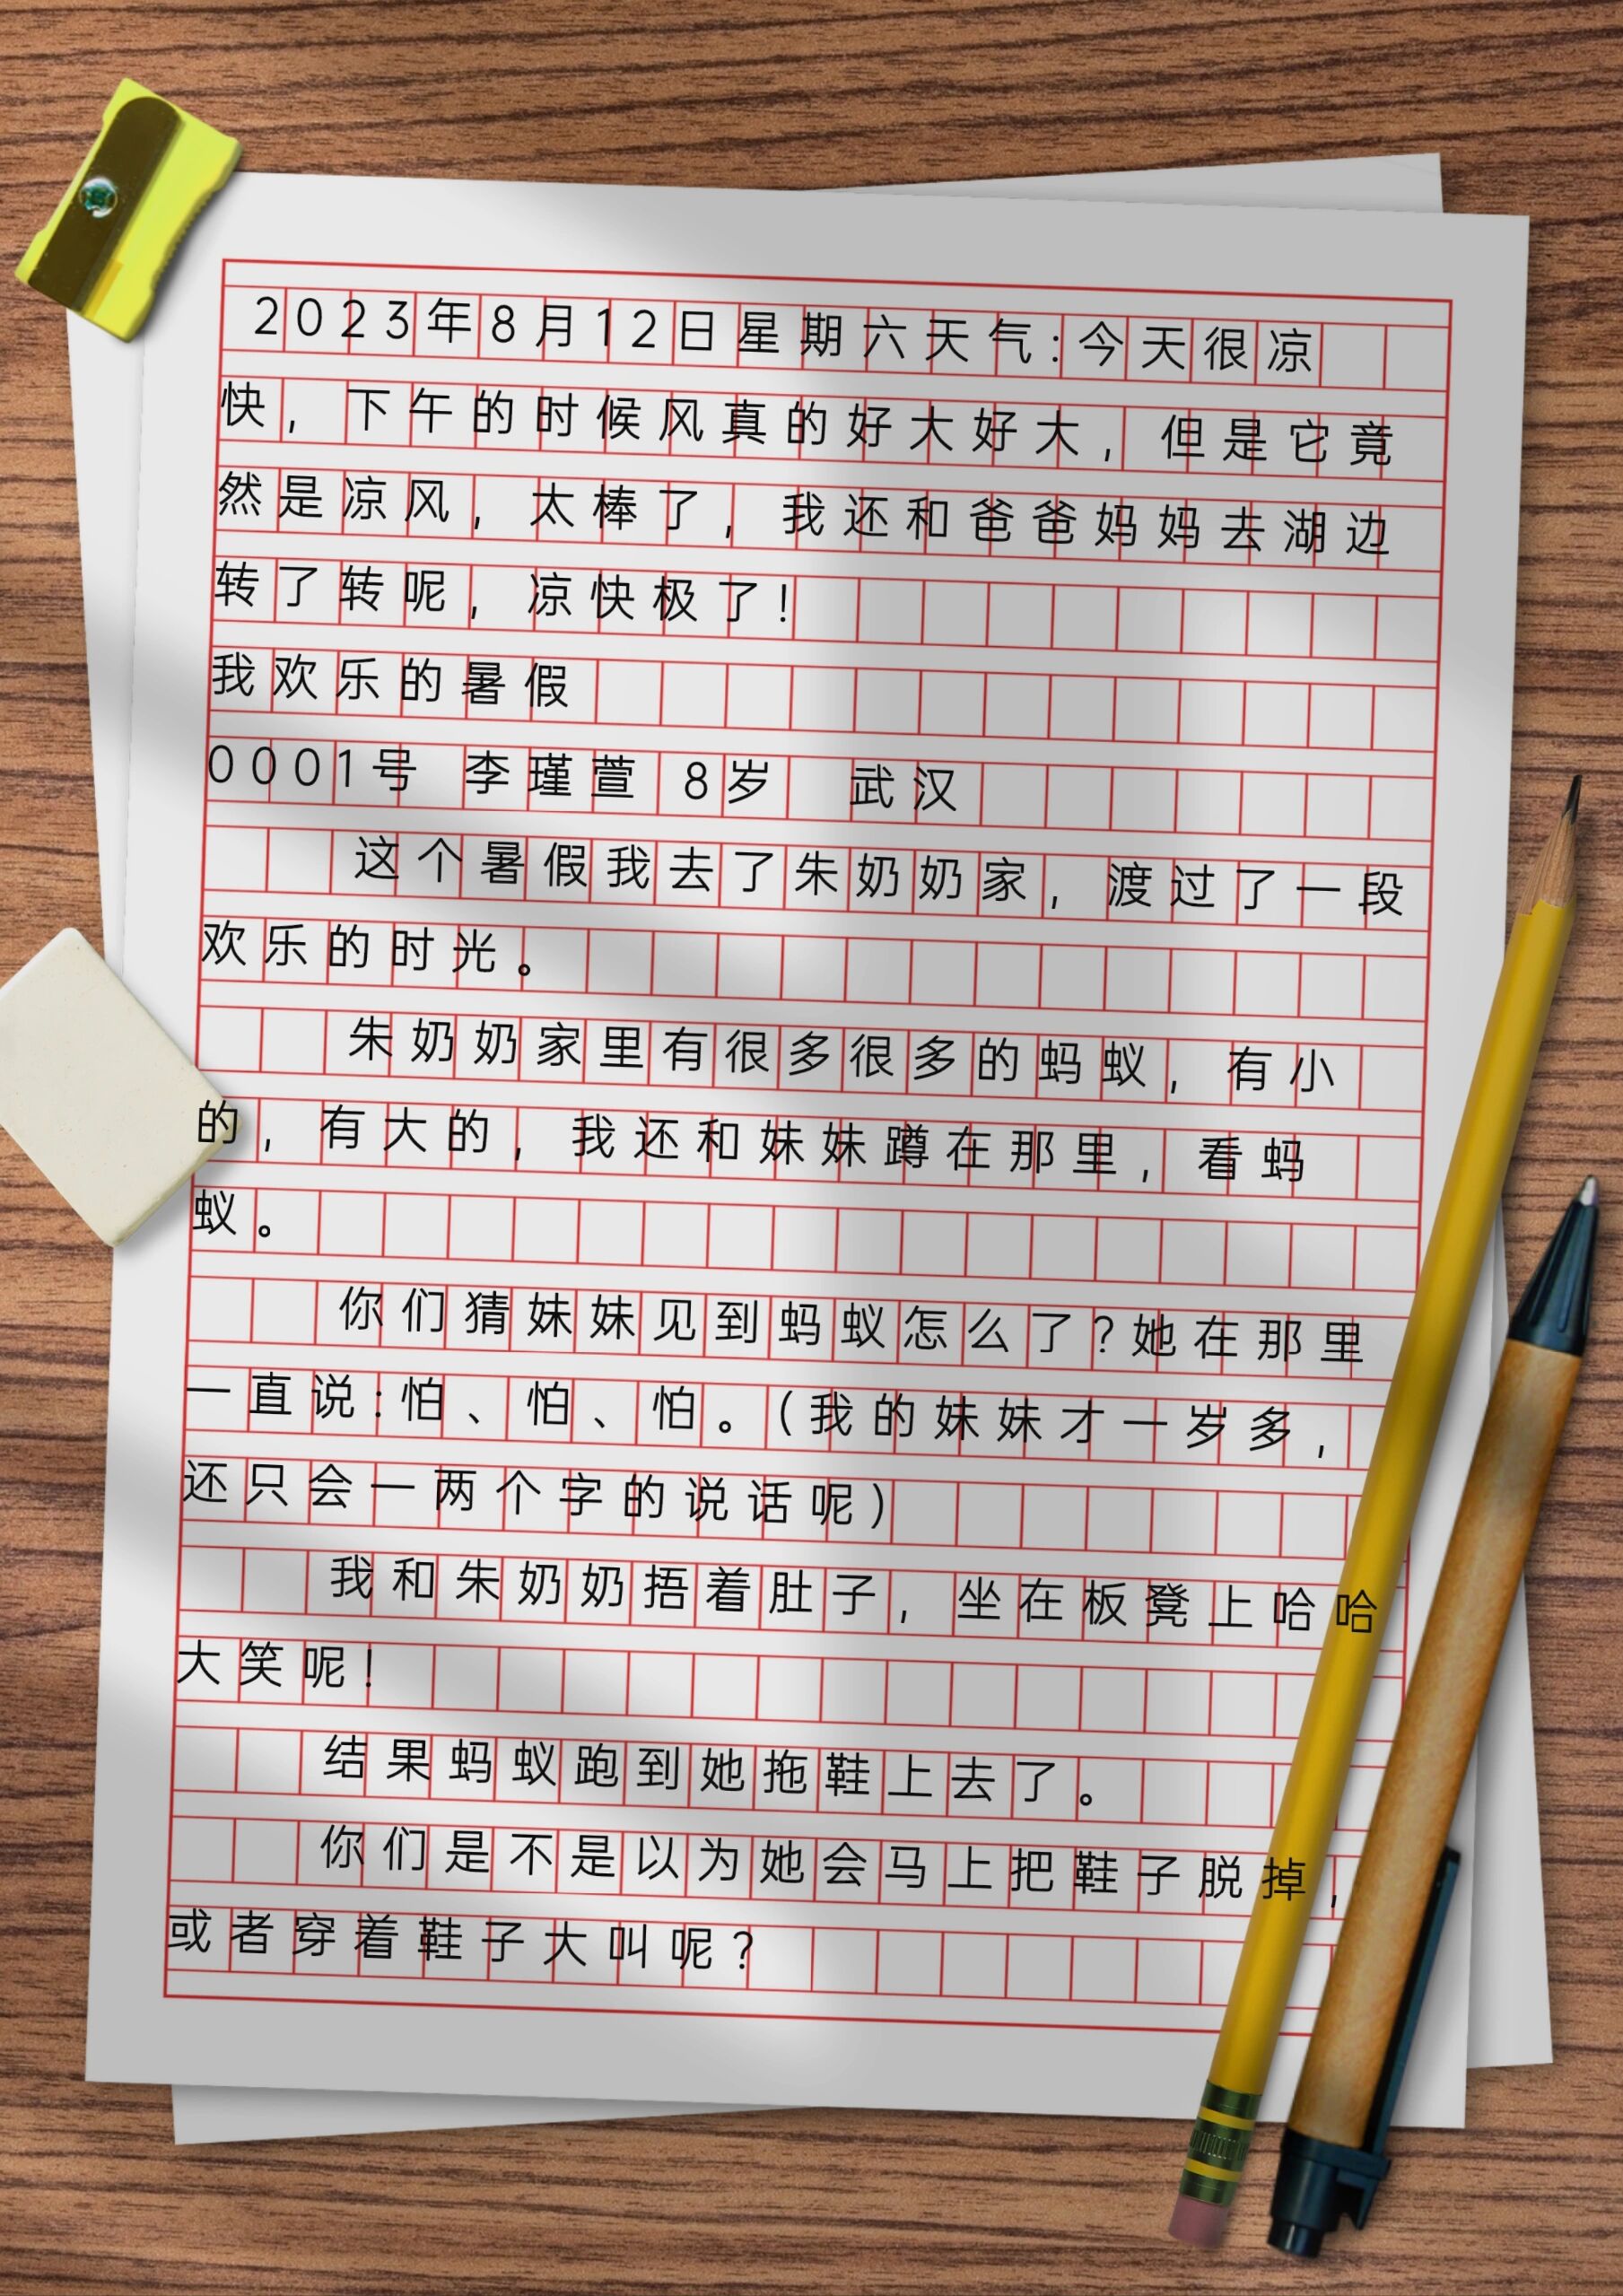 2023年8月12日星期六天气:今天很凉
快，下午的时候风真的好大好大，但是它竟
然是凉风，太棒了，我还和爸爸妈妈去湖边
转了转呢，凉快极了!
我欢乐的暑假
0001号 李瑾萱 8岁 武汉
这个暑假我去了朱奶奶家，渡过了一段
欢乐的时光。
朱奶奶家里有很多很多的蚂蚁，有小
的，有大的，我还和妹妹蹲在那里，看蚂
蚁。
你们猜妹妹见到蚂蚁怎么了?她在那里
一直说:怕、怕、怕。(我的妹妹才一岁多，
还只会一两个字的说话呢)
我和朱奶奶捂着肚子，坐在板凳上哈哈
大笑呢!
结果蚂蚁跑到她拖鞋上去了。
你们是不是以为她会马上把鞋子脱掉，
或者穿着鞋子大叫呢?